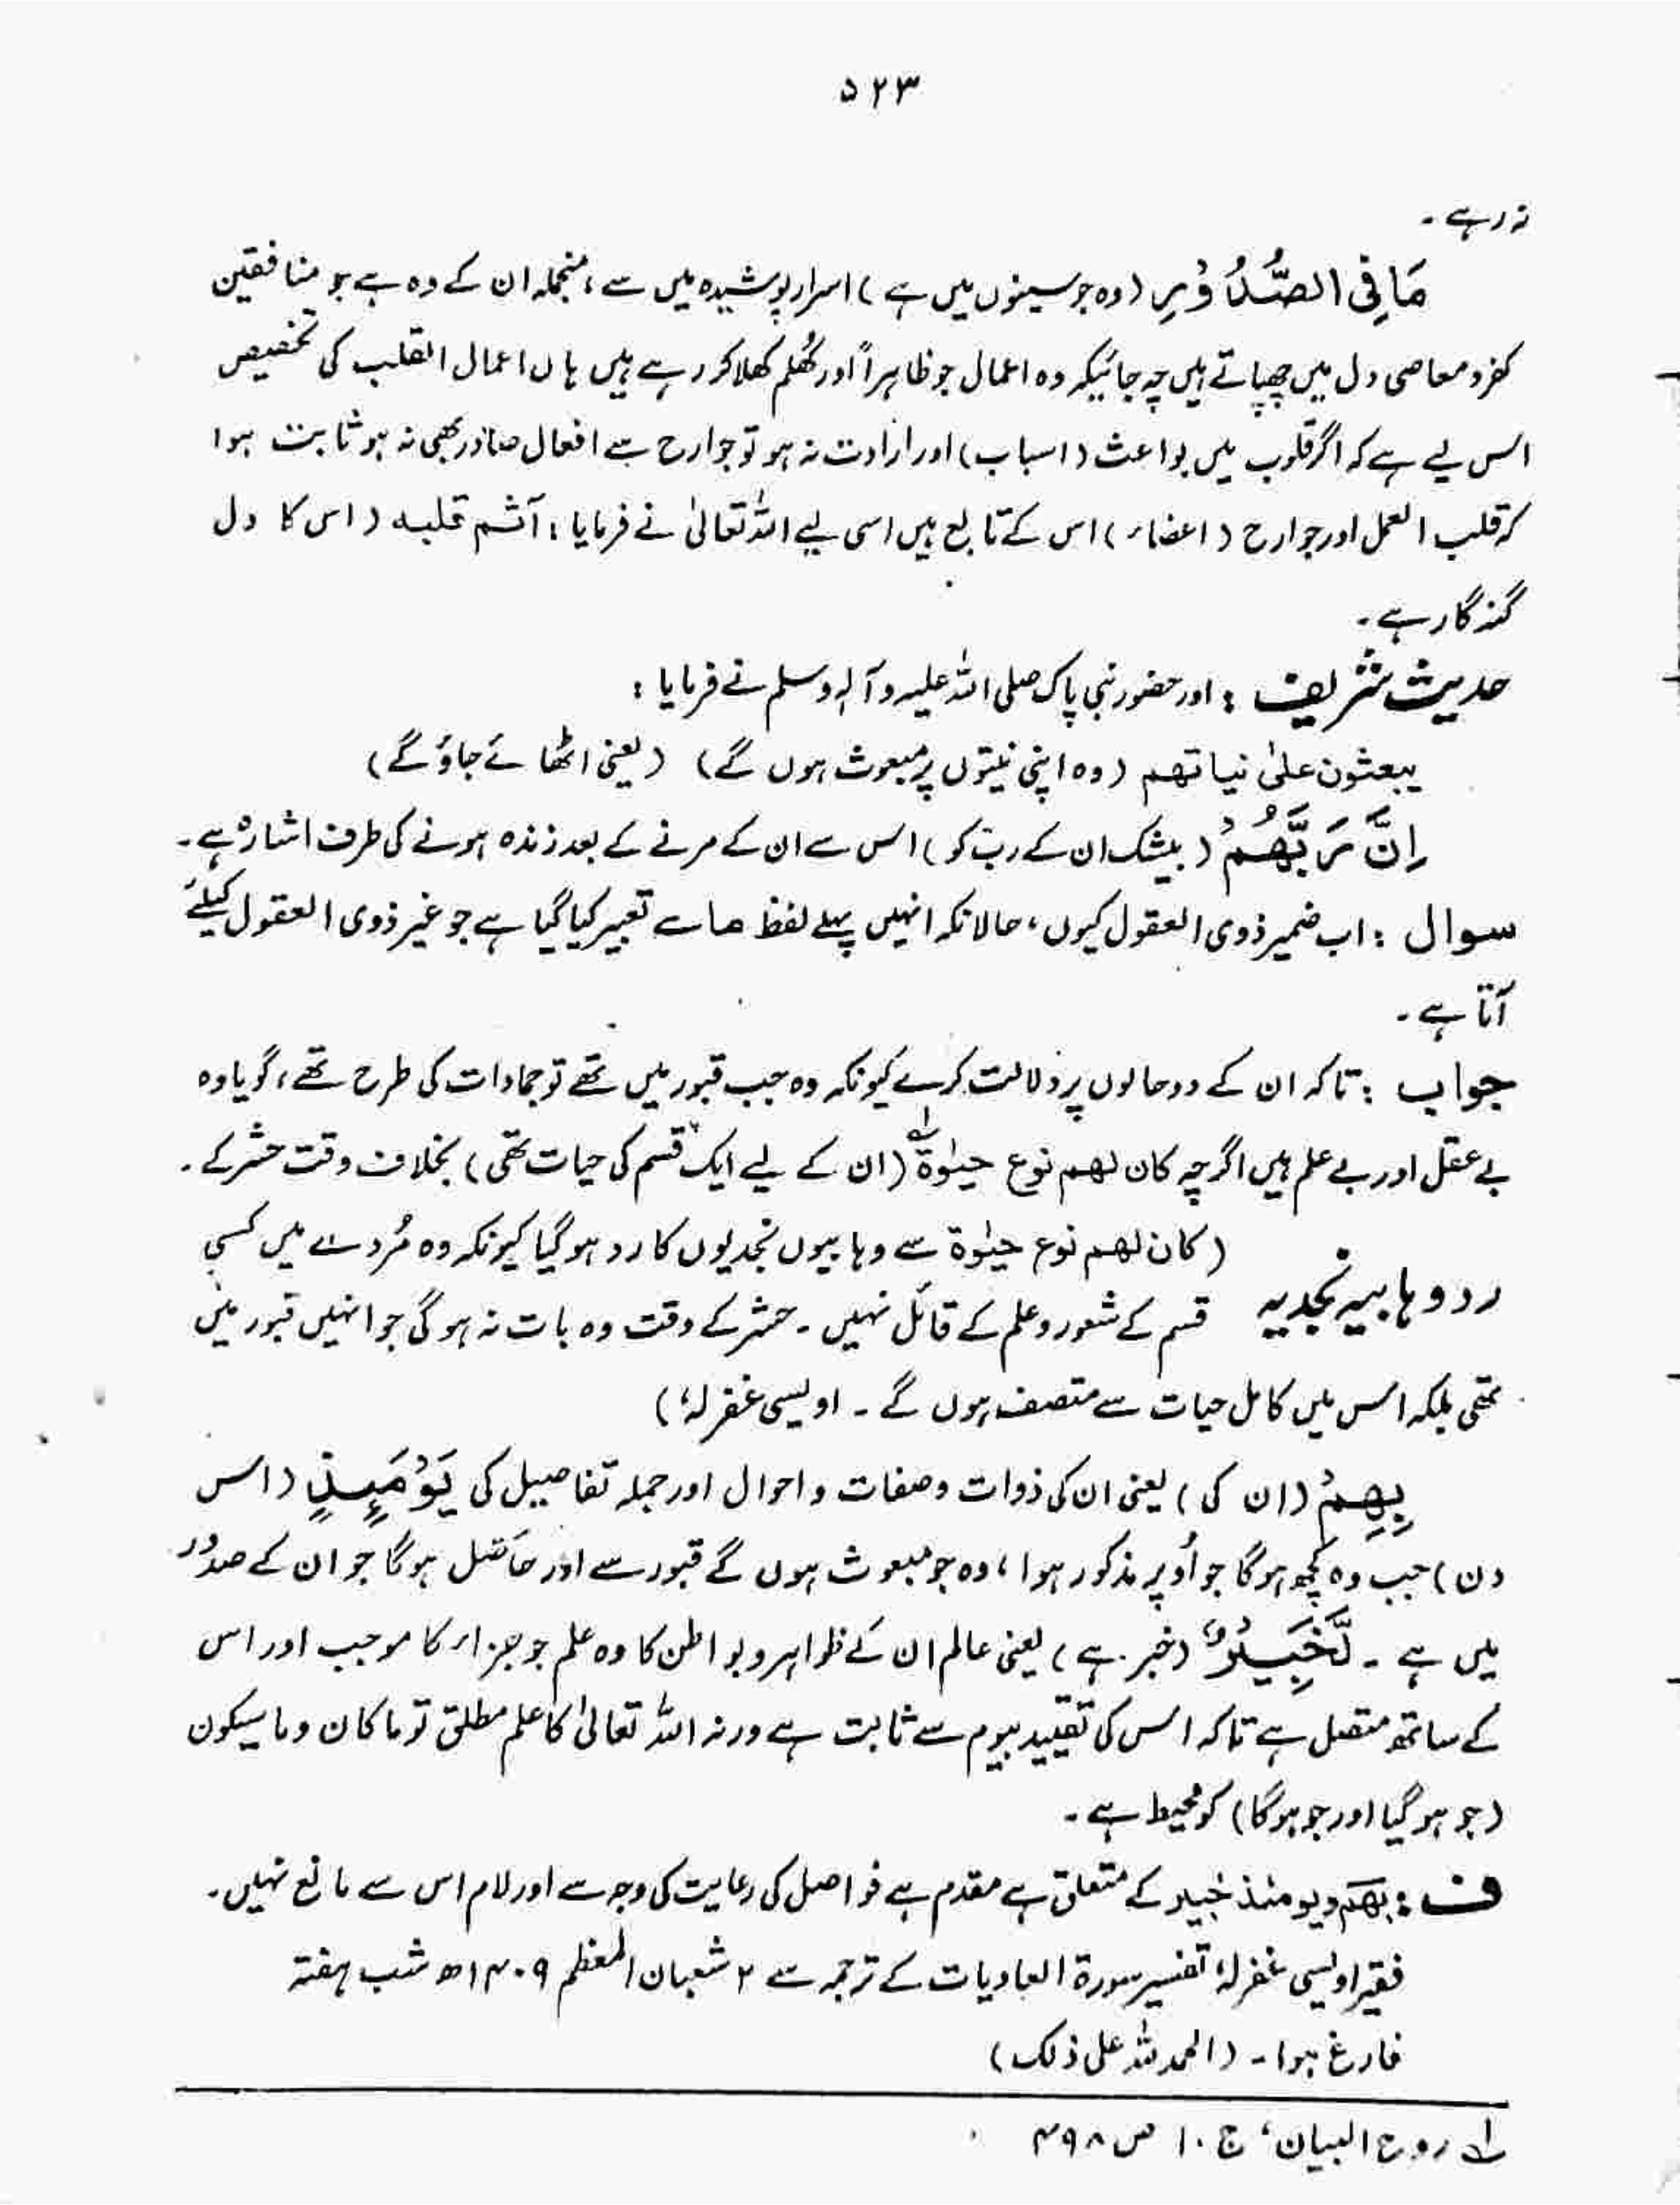 ۵۲۳
نہ رہے۔
مَا فِی الصُّدُوْرِ (وہ جو سینوں میں ہے) اسرار پوشیدہ میں سے، منجملہ ان کے وہ ہے جو منافقین
کفر و معاصی دل میں چھپاتے ہیں چہ جائیکہ وہ اعمال جو ظاہراً اور کُھلم کھلا کر رہے ہیں ہاں اعمال القلب کی تخصیص
اس لیے ہے کہ اگر قلوب میں بواعث (اسباب) اور ارادت نہ ہو تو جوارح سے افعال صادر بھی نہ ہو ثابت ہوا
کہ قلب العمل اور جوارح (اعضاء) اس کے تابع ہیں اسی لیے اللہ تعالیٰ نے فرمایا: آثم قلبہ (اس کا دل
گنہ گار ہے۔
حدیث شریف : اور حضور نبی پاک صلی اللہ علیہ وآلہٖ وسلم نے فرمایا :
یبعثون علیٰ نیاتھم (وہ اپنی نیتوں پر مبعوث ہوں گے) (یعنی اٹھائے جاؤ گے)
اِنَّ رَبَّھُمْ (بیشک ان کے رب کو) اس سے ان کے مرنے کے بعد زندہ ہونے کی طرف اشارہ ہے۔
سوال : اب ضمیر ذوی العقول کیوں، حالانکہ انہیں پہلے لفظ ما سے تعبیر کیا گیا ہے جو غیر ذوی العقول کیلئے
آتا ہے۔
جواب : تاکہ ان کے دو حالوں پر دلالت کرے کیونکہ وہ جب قبور میں تھے تو جمادات کی طرح تھے، گویا وہ
بے عقل اور بے علم ہیں اگرچہ کان لھم نوع حیٰوۃ ۱؎ (ان کے لیے ایک قسم کی حیات تھی) بخلاف وقت حشر کے۔
رد وہابیہ نجدیہ (کان لھم نوع حیٰوۃ سے وہابیوں نجدیوں کا رد ہو گیا کیونکہ وہ مُردے میں کسی
قسم کے شعور و علم کے قائل نہیں۔ حشر کے وقت وہ بات نہ ہوگی جو انہیں قبور میں
تھی بلکہ اس میں کامل حیات سے متصف ہوں گے۔ اویسی غفرلہٗ)
بِھِمْ (ان کی) یعنی ان کی ذوات و صفات و احوال اور جملہ تفاصیل کی یَوْمَىِٕذٍ (اس
دن) جب وہ کچھ ہوگا جو اُوپر مذکور ہوا، وہ جو مبعوث ہوں گے قبور سے اور حاصل ہوگا جو ان کے صدُور
میں ہے۔ لَّخَبِیْرٌ (خبر ہے) یعنی عالم ان کے ظواہر و بواطن کا وہ علم جو جزاء کا موجب اور اس
کے ساتھ متصل ہے تاکہ اس کی تقیید بیوم سے ثابت ہے ورنہ اللہ تعالیٰ کا علم مطلق تو ما کان و ما سیکون
(جو ہو گیا اور جو ہوگا) کو محیط ہے۔
ف : بھم و یومئذ خبیر کے متعلق ہے مقدم ہے فواصل کی رعایت کی وجہ سے اور لام اس سے مانع نہیں۔
فقیر اویسی غفرلہٗ تفسیر سورۃ العادیات کے ترجمہ سے ۲ شعبان المعظم ۱۴۰۹ھ شب ہفتہ
فارغ ہوا۔ (الحمد للہ علی ذلک)
۱؎ روح البیان، ج ۱۰ ص ۴۹۸